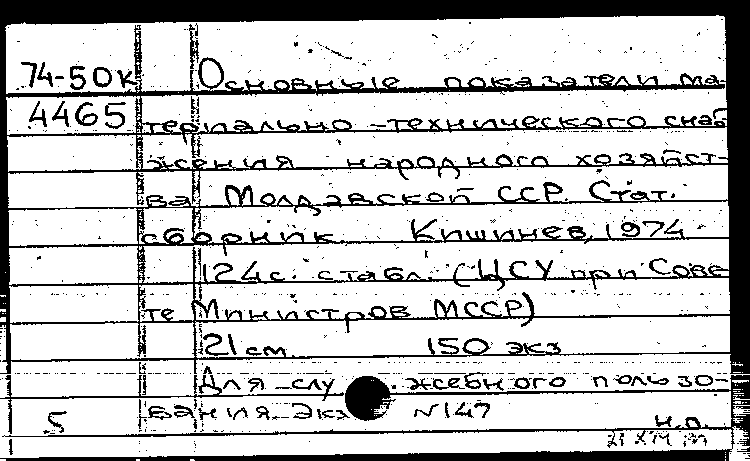 74-50к Основные показатели ма-
4465 териально-технического снаб
жения народного хозяйст-
ва Молдавской ССР. Стат.
сборник. Кишинев, 1974
124с. с табл. (ЦСУ при Сове
те Министров МССР)
21 см 150 экз
Для служебного пользо-
вания. Экз N147
5 н.п.